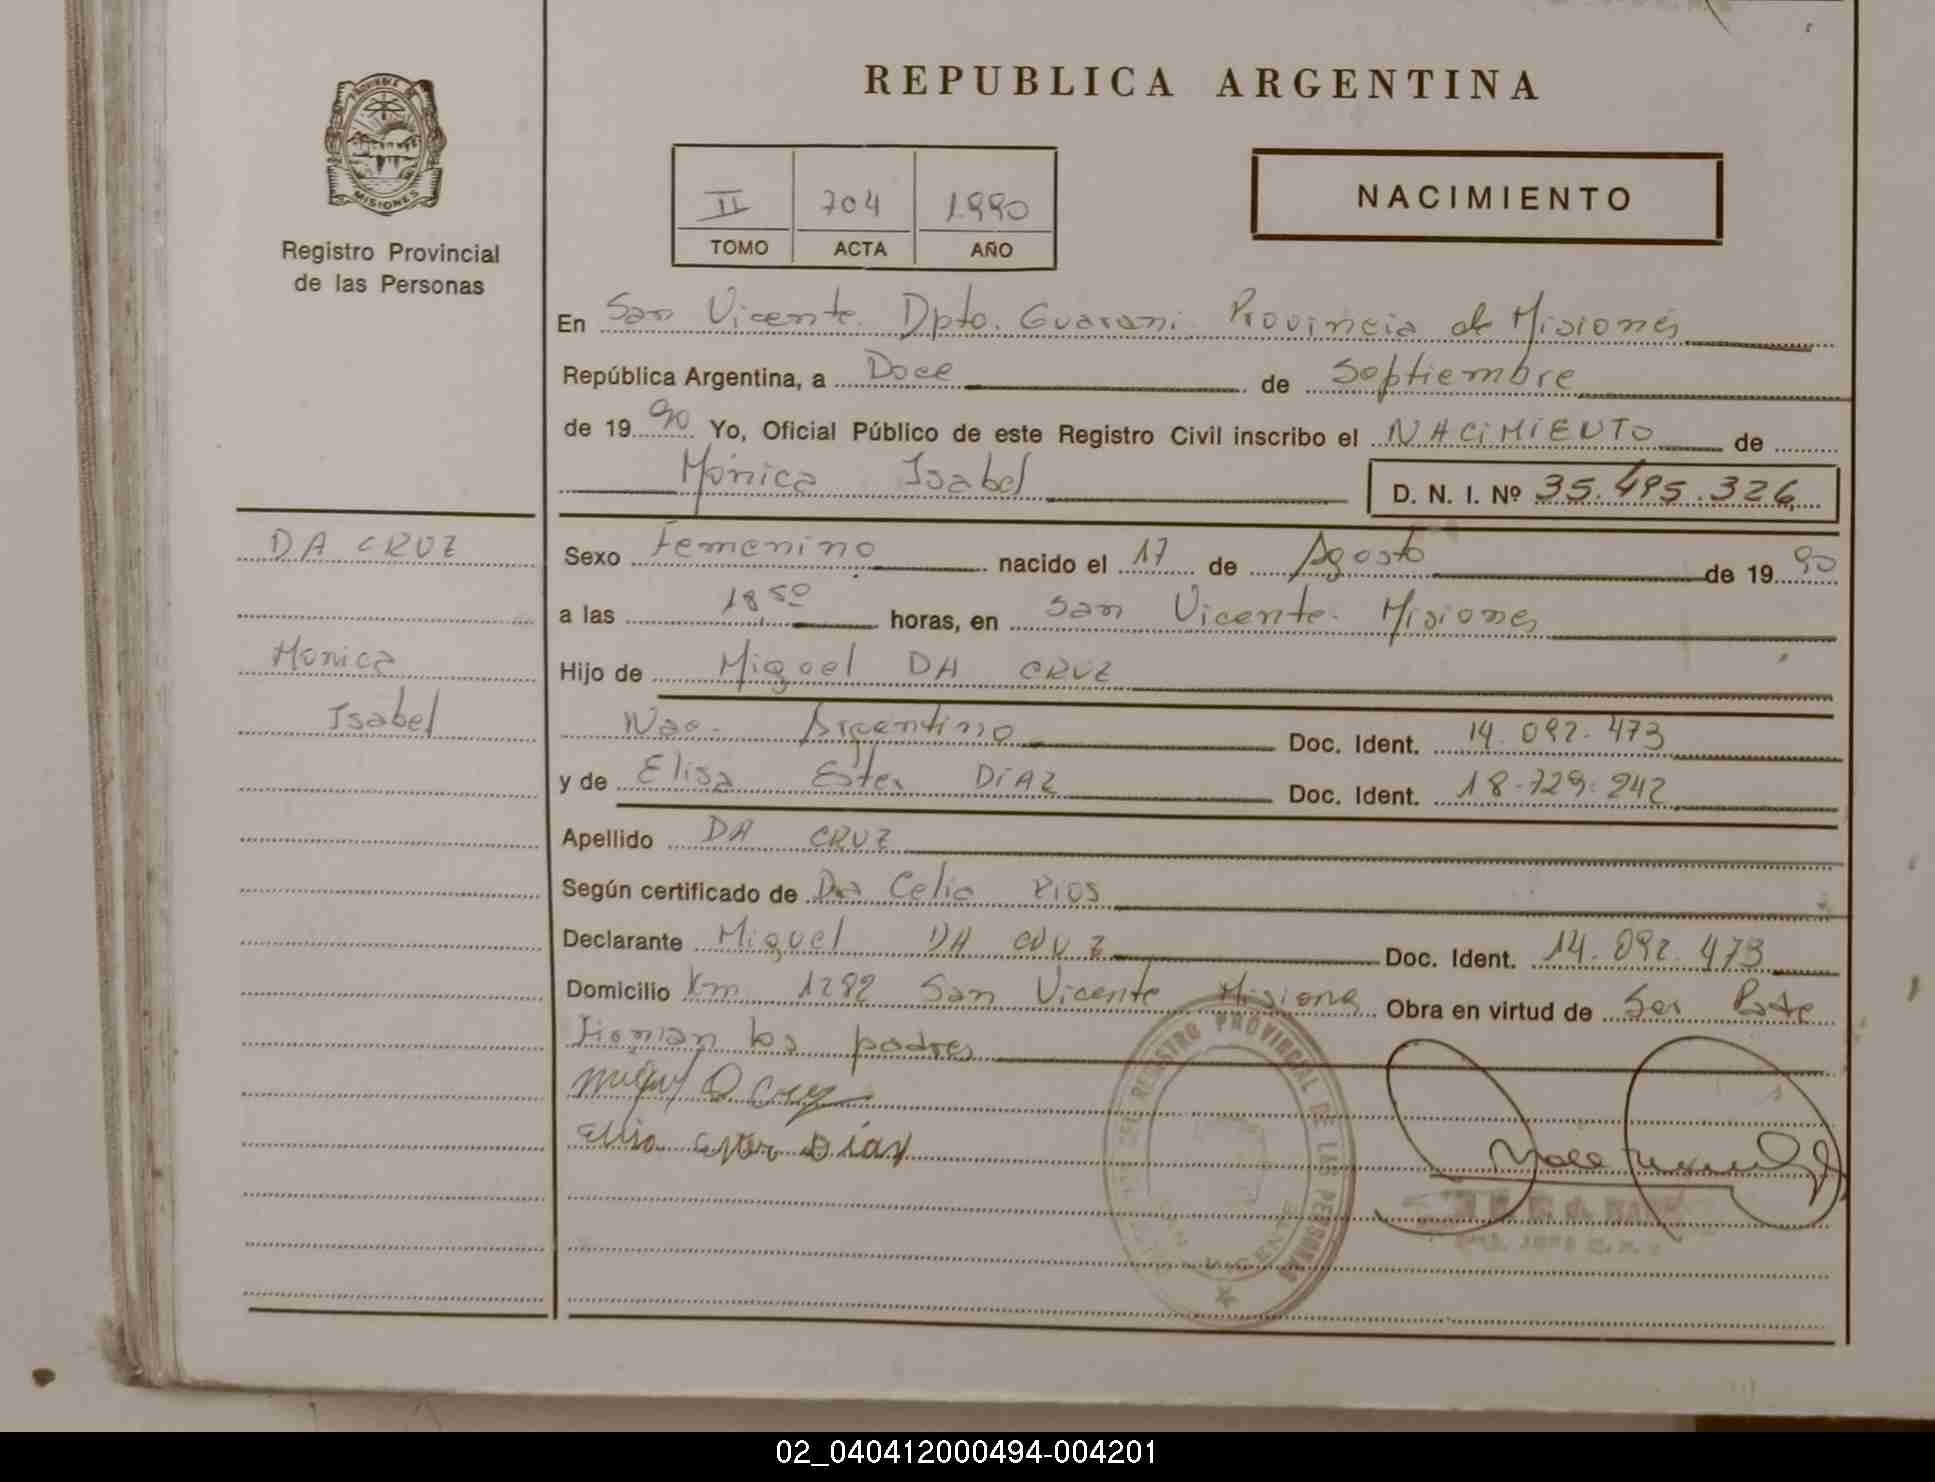 REPUBLICA ARGENTINA
PROVINCIA DE
MISIONES
Registro Provincial
de las Personas
II 704 1990
TOMO ACTA AÑO
NACIMIENTO
En San Vicente. Dpto. Guarani. Provincia de Misiones
República Argentina, a Doce de Septiembre
de 1990 Yo, Oficial Público de este Registro Civil inscribo el NACIMIENTO de
Mónica Isabel D. N. I. Nº 35.495.326
DA CRUZ
Monica
Isabel
Sexo Femenino nacido el 17 de Agosto de 1990
a las 18 50 horas, en San Vicente. Misiones
Hijo de Miguel DA CRUZ
Nac. Argentino Doc. Ident. 14.092.473
y de Elisa Ester DIAZ Doc. Ident. 18.729.242
Apellido DA CRUZ
Según certificado de Da Celia Rios
Declarante Miguel DA CRUZ Doc. Ident. 14.092.473
Domicilio Km 1282 San Vicente Misiones Obra en virtud de Ser Pate
Firman los padres
Ester Diaz
REGISTRO PROVINCIAL DE LAS PERSONAS
VICENTE
02_040412000494-004201